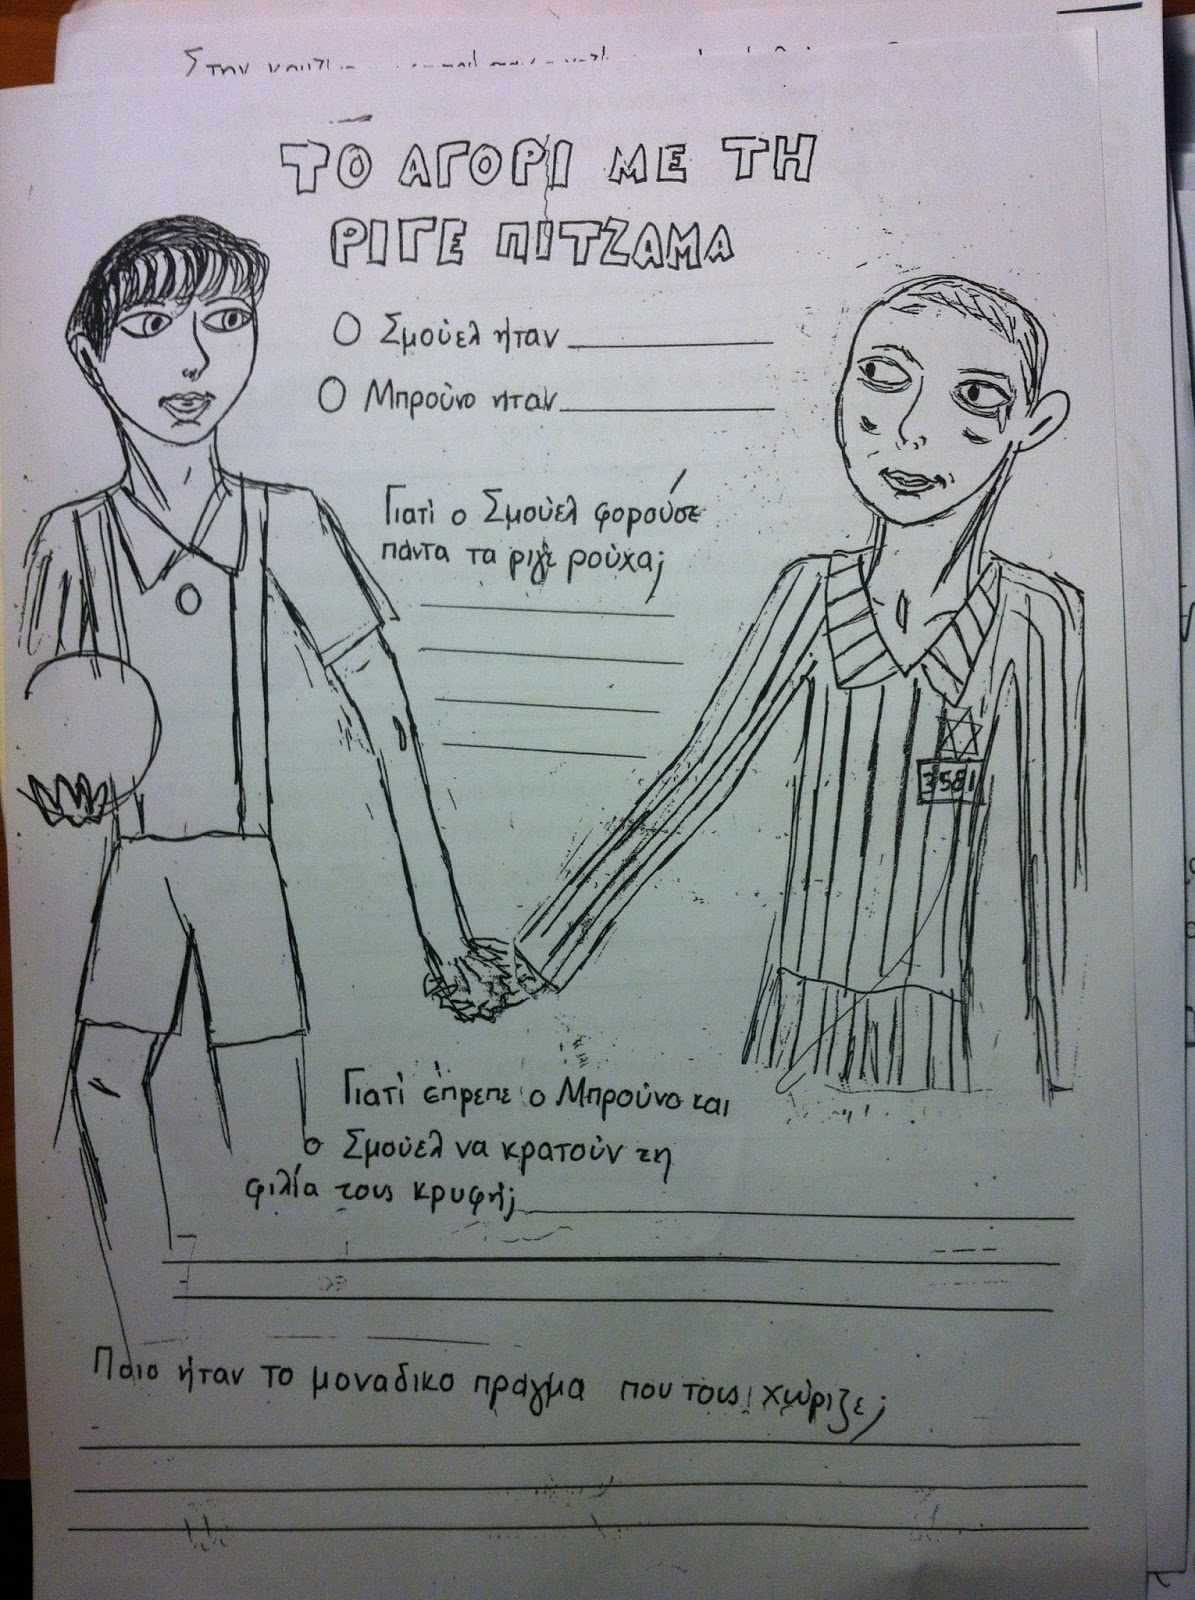 Στην
ΤΟ ΑΓΟΡΙ ΜΕ ΤΗ
ΡΙΓΕ ΠΙΤΖΑΜΑ
Ο Σμούελ ήταν
Ο Μπρούνο ήταν
Γιατί ο Σμούελ φορούσε
πάντα τα ριγέ ρούχα;
3581
Γιατί έπρεπε ο Μπρούνο και
ο Σμούελ να κρατούν τη
φιλία τους κρυφή;
Ποιο ήταν το μοναδικό πράγμα που τους χώριζε;